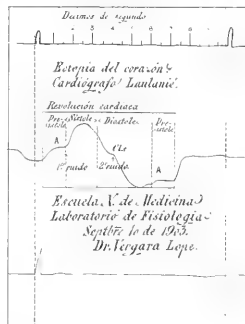 Décimos de segundo
2 3 4 5 6 7 8
Ectopia del corazón
Cardiógrafo Laulanié.
Revolución cardiaca
Pre-sístole Sístole Diástole Pre-sístole
A
1er ruido 2º ruido
A
Escuela N. de Medicina
Laboratorio de Fisiología
Septbre 10 de 1903.
Dr. Vergara Lope.